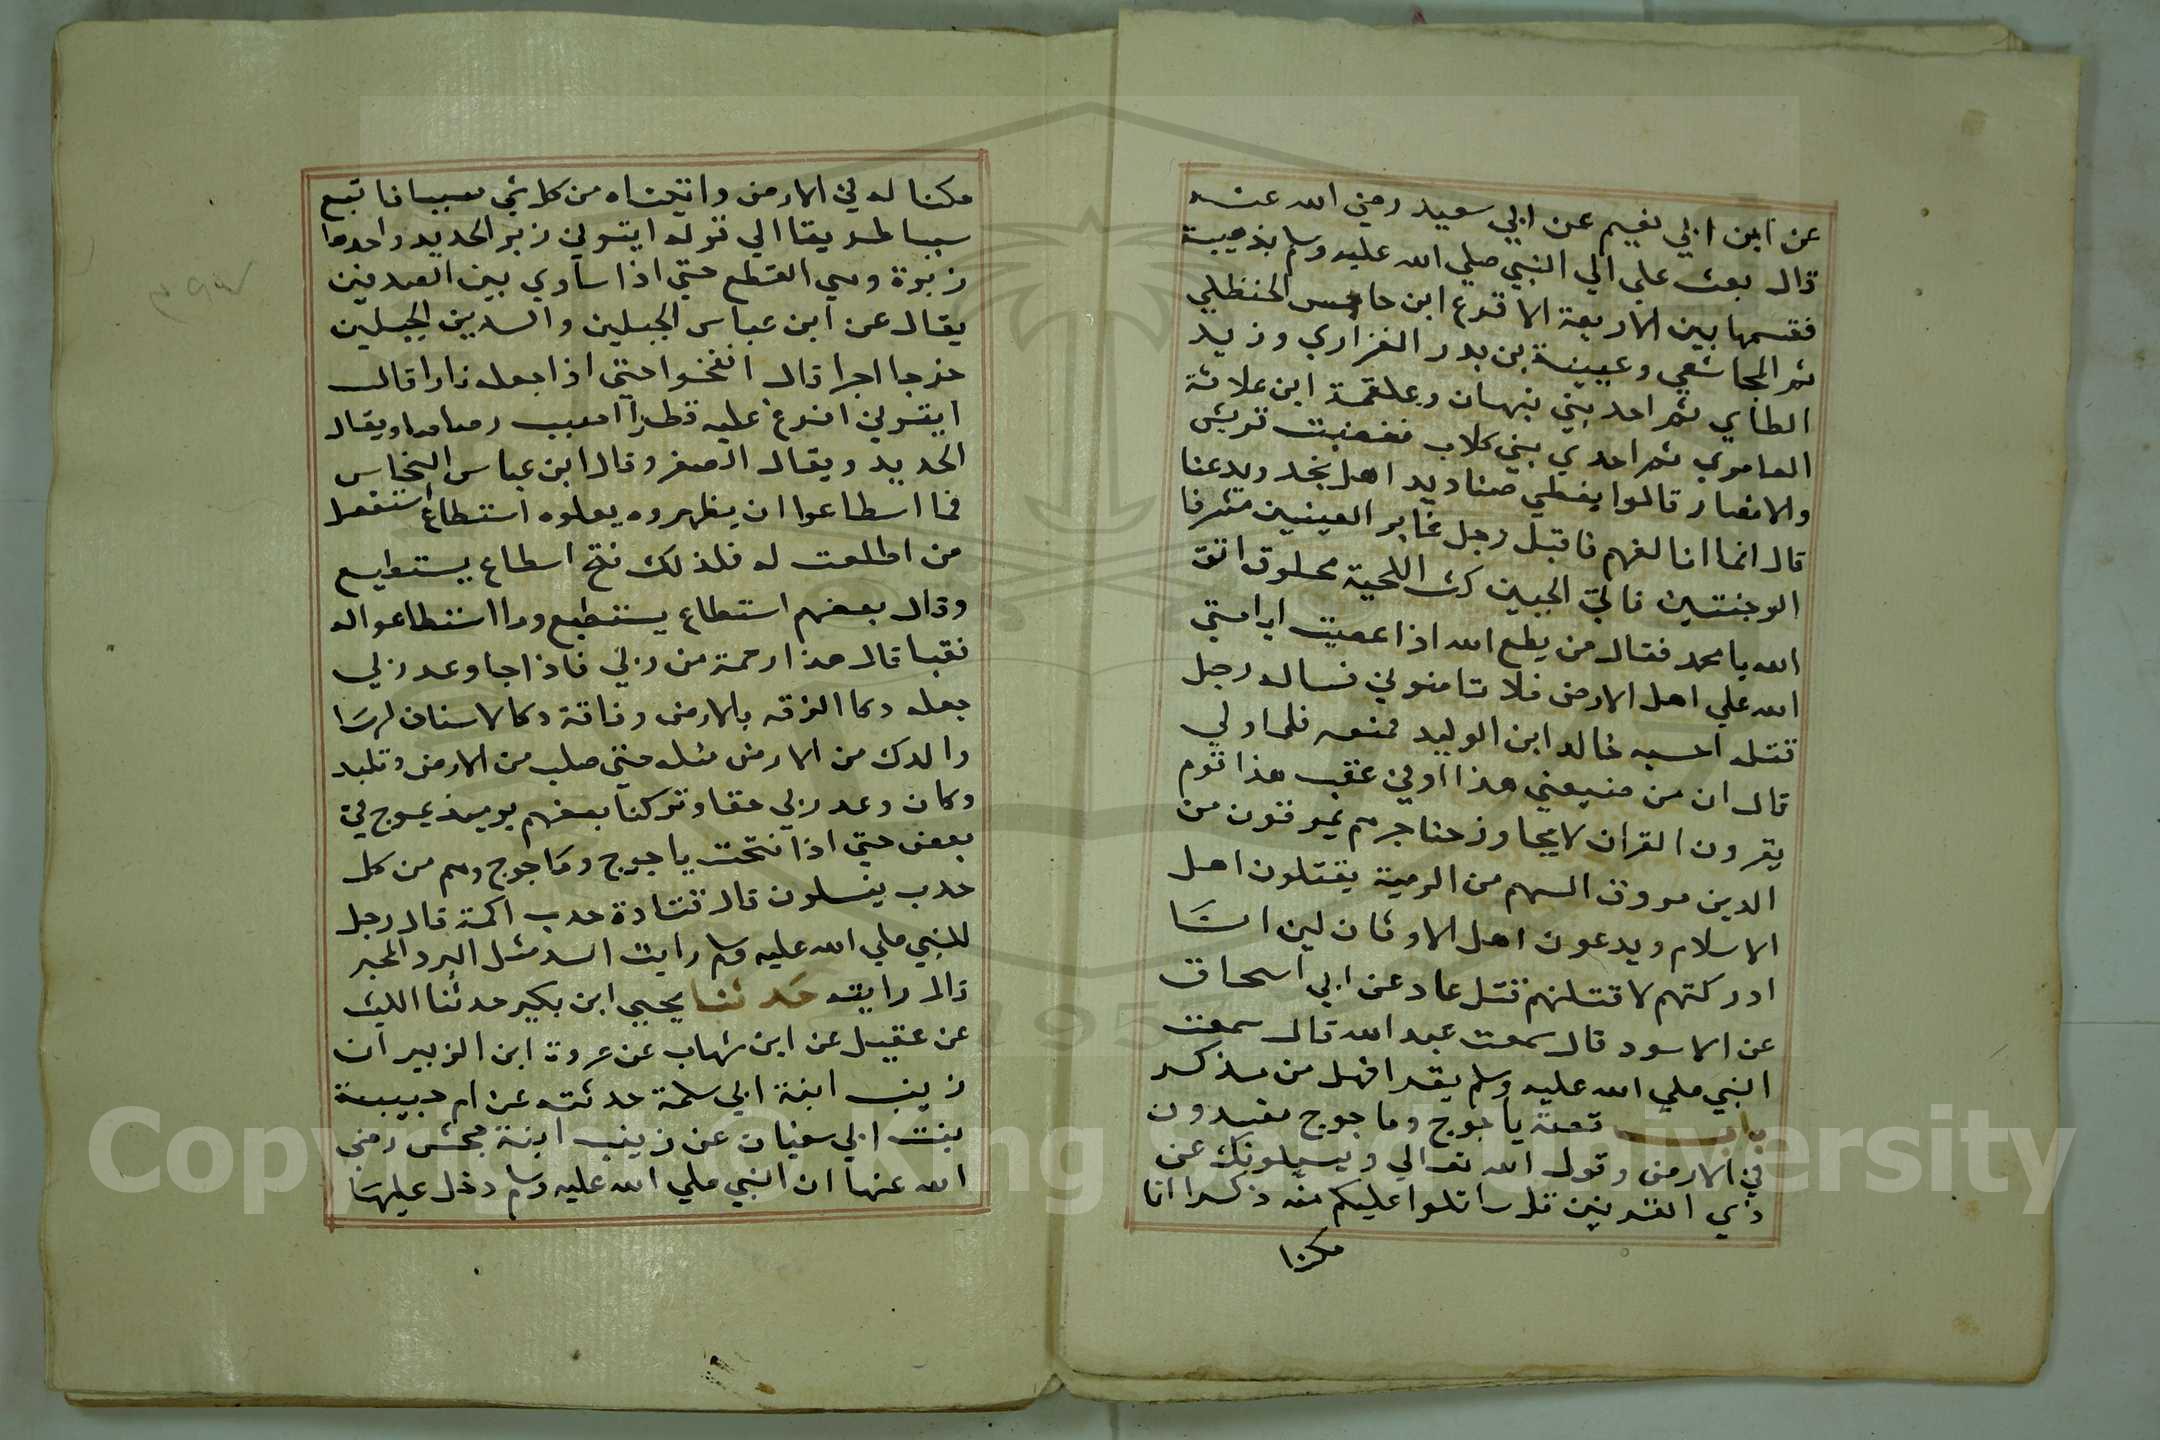 عن ابن ابي نعيم عن ابي سعيد رضي الله عنه
قال بعث علي الي النبي صلي الله عليه وسلم بذهبية
فقسمها بين الاربعة الاقرع ابن حابس الحنظلي
ثم المجاشعي وعيينة بن بدر الفزاري وزيد
الطاي ثم احد بني نبهان وعلقمة ابن علاثة
العامري ثم احدي بني كلاب فغضبت قريش
والانصار قالوا يعطي صناديد اهل نجد ويدعنا
قال انما اتالفهم فاقبل رجل غابر العينين مشرفا
الوجنتين ناتي الجبين كث اللحية محلوق اتق
الله يا محمد فقال من يطع الله اذا عصيت ايامنني
الله علي اهل الارض فلا تامنوني فساله رجل
قتله احسبه خالد ابن الوليد فمنعه فلما ولي
قال ان من ضيضي هذا او في عقب هذا قوم
يقرون القران لا يجاوز حناجرهم يمرقون من
الدين مروق السهم من الرمية يقتلون اهل
الاسلام ويدعون اهل الاوثان لين انا
ادركتهم لاقتلنهم قتل عاد عن ابي اسحاق
عن الاسود قال سمعت عبد الله قال سمعت
النبي صلي الله عليه وسلم يقرا فهل من مذكر
باب قصة ياجوج وماجوج مفسدون
في الارض وقول الله تعالي ويسيلونك عن
ذي القرنين قل ساتلوا عليكم منه ذكرا انا
مكنا
مكنا له في الارض واتيناه من كل شي سببا فاتبع
سببا طريقا الي قوله ايتوني زبر الحديد واحدها
زبرة وهي القطع حتي اذا ساوي بين الصدفين
يقال عن ابن عباس الجبلين والسدين الجبلين
خرجا اجرا قال انفخوا حتي اذا جعله نارا قال
ايتوني افرغ عليه قطرا اصبب رصاصا ويقال
الحديد ويقال الصفر وقال ابن عباس النحاس
فما اسطاعوا ان يظهروه يعلوه استطاع استفعل
من اطلعت له فلذلك فتح اسطاع يستطيع
وقال بعضهم استطاع يستطيع وما استطاعوا له
نقبا قال هذا رحمة من ربي فاذا جا وعد ربي
جعله دكا الزقه بالارض وناقة دكا لا سنام لها
والدك من الارض مثله حتي صلب من الارض وتلبد
وكان وعد ربي حقا وتركنا بعضهم يوميذ يموج في
بعض حتي اذا فتحت ياجوج وماجوج وهم من كل
حدب ينسلون قال قتادة حدب اكمة قال رجل
للنبي صلي الله عليه وسلم رايت السد مثل البرد المحبر
قال رايته حدثنا يحيي ابن بكير حدثنا الليث
عن عقيل عن ابن شهاب عن عروة ابن الزبير ان
زينب ابنة ابي سلمة حدثته عن ام حبيبة
بنت ابي سفيان عن زينب ابنة جحش رضي
الله عنها ان النبي صلي الله عليه وسلم دخل عليها
Copyright © King Saud University
1957